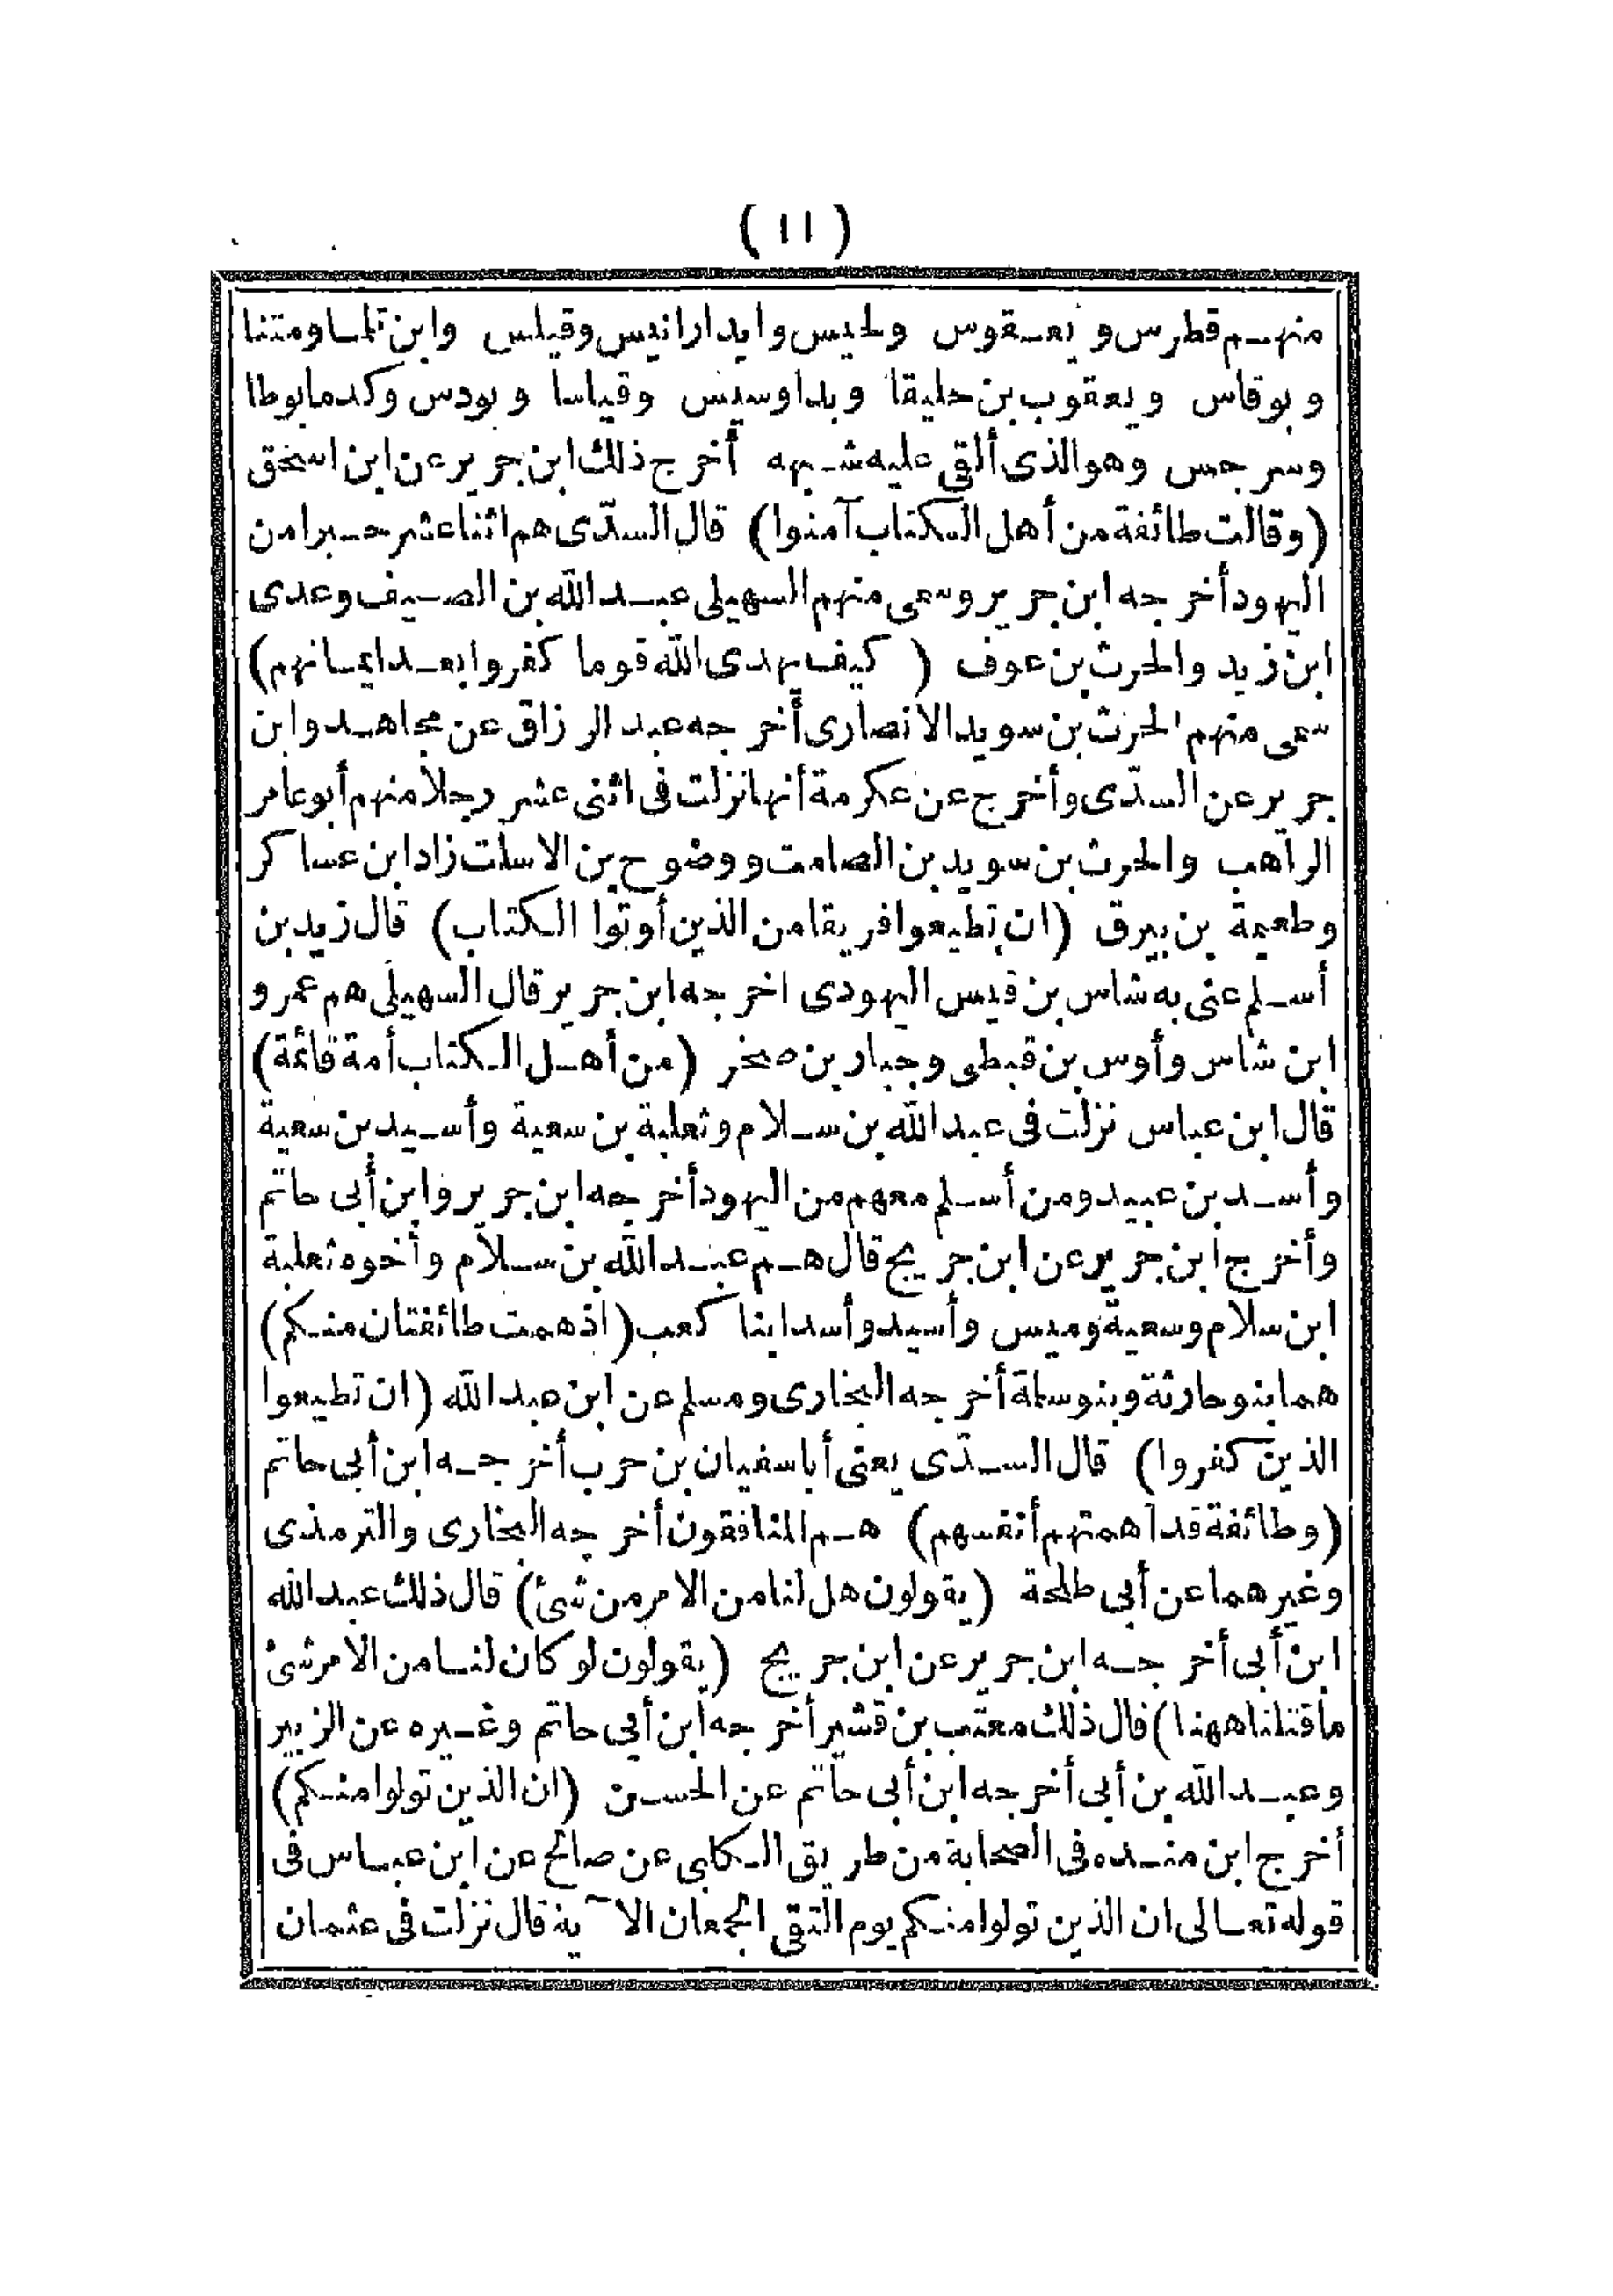 (١١)
منهم قطرس ويعقوس ولحيس وايدارانيس وقيلس وابن تلما ومتنا
وبوقاس ويعقوب بن حليقا وبداوسيس وقياسا وبودس وكدمابوطا
وسرجس وهو الذى ألقى عليه شبهه أخرج ذلك ابن جرير عن ابن اسحق
(وقالت طائفة من أهل الكتاب آمنوا) قال السدّى هم اثنا عشر حبرا من
اليهود أخرجه ابن جرير وسمى منهم السهيلى عبد الله بن الصيف وعدى
ابن زيد والحرث بن عوف (كيف يهدى الله قوما كفروا بعد ايمانهم)
سمى منهم الحرث بن سويد الانصارى أخرجه عبد الرزاق عن مجاهد وابن
جرير عن السدّى وأخرج عن عكرمة أنها نزلت فى اثنى عشر رجلا منهم أبو عامر
الراهب والحرث بن سويد بن الصامت ووضوح بن الاسلت زاد ابن عساكر
وطعيمة بن بيرق (ان تطيعوا فريقا من الذين أوتوا الكتاب) قال زيد بن
أسلم عنى به شاس بن قيس اليهودى اخرجه ابن جرير قال السهيلى هم عمرو
ابن شاس وأوس بن قبطى وجبار بن صخر (من أهل الكتاب أمة قائمة)
قال ابن عباس نزلت فى عبد الله بن سلام وثعلبة بن سعية وأسيد بن سعية
وأسد بن عبيد ومن أسلم معهم من اليهود أخرجه ابن جرير وابن أبى حاتم
وأخرج ابن جرير عن ابن جريج قال هم عبد الله بن سلام وأخوه ثعلبة
ابن سلام وسعية وميس وأسيد وأسد ابنا كعب (اذ همت طائفتان منكم)
هما بنو حارثة وبنو سلمة أخرجه البخارى ومسلم عن ابن عبد الله (ان تطيعوا
الذين كفروا) قال السدّى يعنى أبا سفيان بن حرب أخرجه ابن أبى حاتم
(وطائفة قد أهمتهم أنفسهم) هم المنافقون أخرجه البخارى والترمذى
وغيرهما عن أبى طلحة (يقولون هل لنا من الامر من شئ) قال ذلك عبد الله
ابن أبى أخرجه ابن جرير عن ابن جريج (يقولون لو كان لنا من الامر شئ
ما قتلنا ههنا) قال ذلك معتب بن قشير أخرجه ابن أبى حاتم وغيره عن الزبير
وعبد الله بن أبى أخرجه ابن أبى حاتم عن الحسن (ان الذين تولوا منكم)
أخرج ابن منده فى الصحابة من طريق الكلبى عن صالح عن ابن عباس فى
قوله تعالى ان الذين تولوا منكم يوم التقى الجمعان الآية قال نزلت فى عثمان